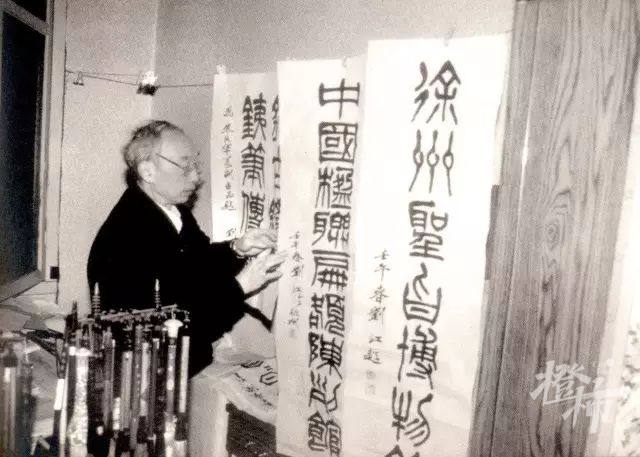 徐州聖旨博物館
壬午春劉江題
中國楹聯匾額陳列館
壬午春劉江
銕筆傳
劉
橙柿